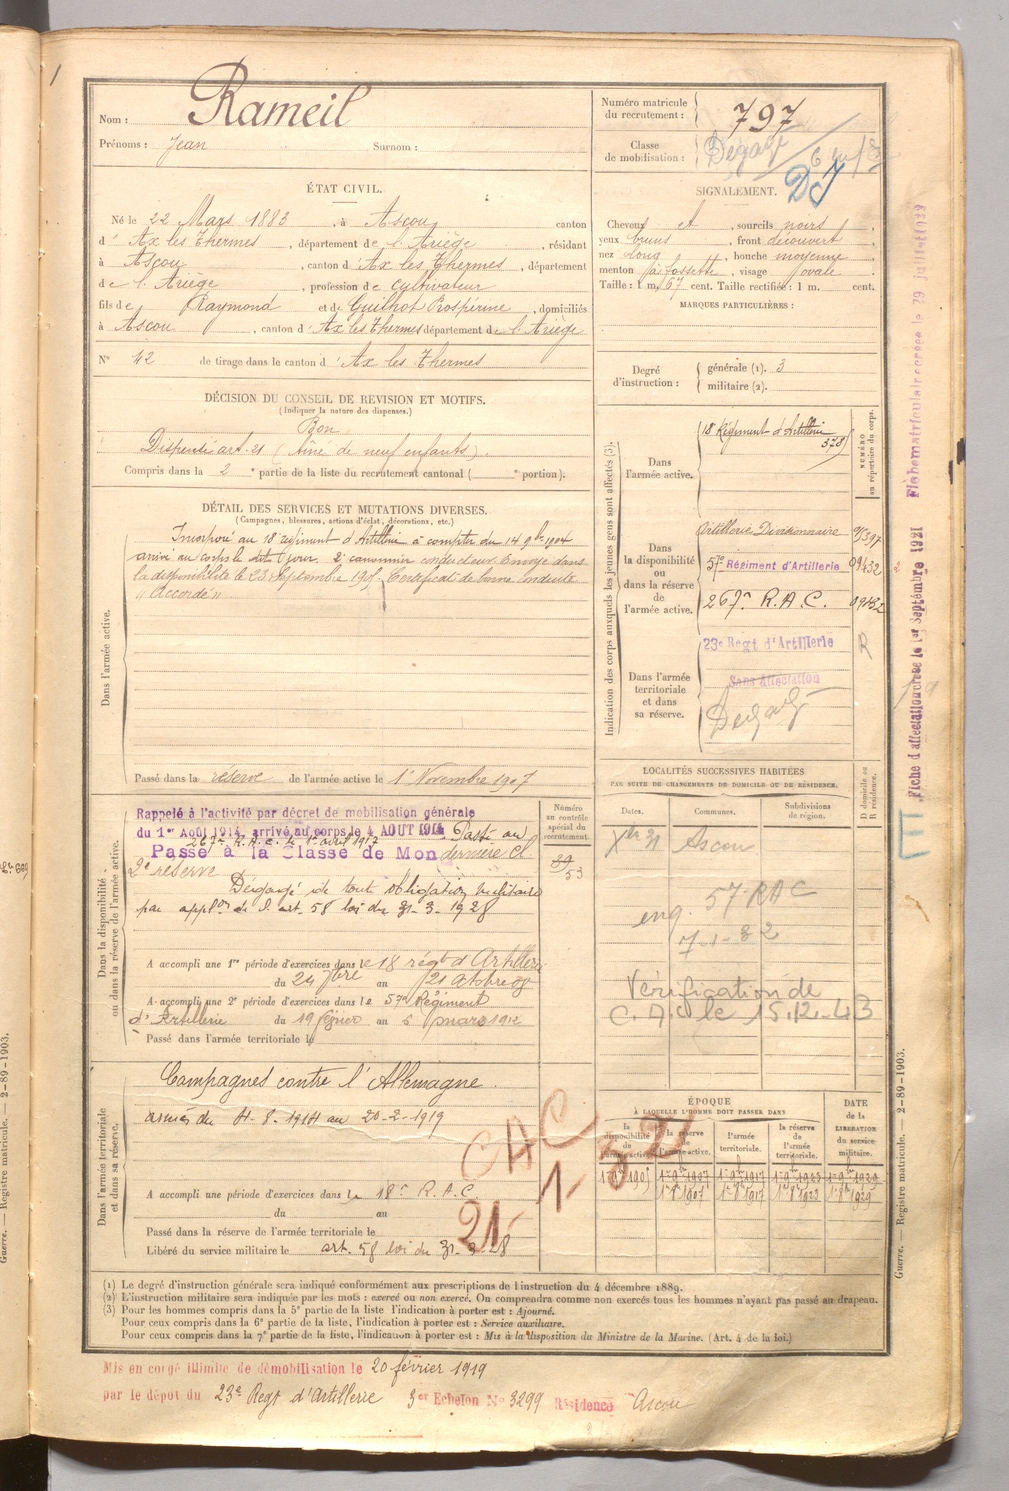 Nom : Rameil
Prénoms : Jean Surnom :
Numéro matricule du recrutement : 797
Classe de mobilisation : Dégagé
DJ
ÉTAT CIVIL.
Né le 22 Mars 1883, à Ascou, canton
d' Ax les Thermes, département de l'Ariège, résidant
à Ascou, canton d' Ax les Thermes, département
de l'Ariège, profession de cultivateur
fils de Raymond et de Guilhot Prospérine, domiciliés
à Ascou, canton d' Ax les Thermes département de l'Ariège
N° 42 de tirage dans le canton d' Ax les Thermes
SIGNALEMENT.
Cheveux et, sourcils noirs
yeux bruns, front découvert
nez long, bouche moyenne
menton à fossette, visage ovale
Taille : 1 m. 67 cent. Taille rectifiée : 1 m. cent.
MARQUES PARTICULIÈRES :
Degré d'instruction : générale (1). 3
militaire (2).
DÉCISION DU CONSEIL DE REVISION ET MOTIFS.
(Indiquer la nature des dispenses.)
Bon
Dispensé art. 21 (Aîné de neuf enfants).
Compris dans la 2e partie de la liste du recrutement cantonal ( e portion).
DÉTAIL DES SERVICES ET MUTATIONS DIVERSES.
(Campagnes, blessures, actions d'éclat, décorations, etc.)
Dans l'armée active.
Incorporé au 18e régiment d'Artillerie à compter du 14 9bre 1904
arrivé au corps le dit jour. 2e canonnier conducteur. Envoyé dans
la disponibilité le 23 Septembre 1905. Certificat de bonne conduite
"Accordé"
Passé dans la réserve de l'armée active le 1er Novembre 1907
Indication des corps auxquels les jeunes gens sont affectés (3).
NUMÉRO au répertoire du corps.
Dans l'armée active.
18 Régiment d'Artillerie
578
Dans la disponibilité ou dans la réserve de l'armée active.
Artillerie Divisionnaire
57e Régiment d'Artillerie 09432
267e R.A.C. 09432
Dans l'armée territoriale et dans sa réserve.
23e Regt d'Artillerie R
Sans Affectation
Dégagé
Fiche matriculaire créée le 29 juillet 1929
Fiche d'affectation créée le 1er Septembre 1921
Dans la disponibilité ou dans la réserve de l'armée active.
Numéro au contrôle spécial du recrutement.
53
Rappelé à l'activité par décret de mobilisation générale
du 1er Août 1914, arrivé au corps le 4 AOUT 1914 Passé au
267e R.A.C. le 1er avril 1917
Passé à la Classe de Mon dernière cl.
2e réserve
Dégagé de toute obligation militaire
par applon de l'art. 58 loi du 31-3-1928
A accompli une 1re période d'exercices dans le 18 régt d'Artillerie
du 24 7bre au 21 octobre 08
A accompli une 2e période d'exercices dans le 57me Régiment
d'Artillerie du 19 février au 6 mars 1912
Passé dans l'armée territoriale le
LOCALITÉS SUCCESSIVES HABITÉES
PAR SUITE DE CHANGEMENTS DE DOMICILE OU DE RÉSIDENCE.
D domicile ou R résidence.
Dates. Communes. Subdivisions de région.
Xbre 31 Ascou
eng. 57 RAC
7-1-32
Vérification de
C.A. le 15.12.43
Dans l'armée territoriale et dans sa réserve.
Campagnes contre l'Allemagne.
armées du 4-8-1914 au 20-2-1919
CAC
21-1-32
A accompli une période d'exercices dans le 18e R.A.C.
du au
Passé dans la réserve de l'armée territoriale le
Libéré du service militaire le art. 58 loi du 31-3-28
ÉPOQUE
À LAQUELLE L'HOMME DOIT PASSER DANS
la disponibilité de l'armée active. la réserve de l'armée active. l'armée territoriale. la réserve de l'armée territoriale. DATE de la LIBÉRATION du service militaire.
(1) Le degré d'instruction générale sera indiqué conformément aux prescriptions de l'instruction du 4 décembre 1889.
(2) L'instruction militaire sera indiquée par les mots : exercé ou non exercé. On comprendra comme non exercés tous les hommes n'ayant pas passé au drapeau.
(3) Pour les hommes compris dans la 5e partie de la liste l'indication à porter est : Ajourné.
Pour ceux compris dans la 6e partie de la liste, l'indication à porter est : Service auxiliaire.
Pour ceux compris dans la 7e partie de la liste, l'indication à porter est : Mis à la disposition du Ministre de la Marine. (Art. 4 de la loi.)
Guerre. — Registre matricule. — 2-89-1903.
Guerre. — Registre matricule. — 2-89-1903.
Mis en congé illimité de démobilisation le 20 février 1919
par le dépôt du 23e Regt d'Artillerie 3er Echelon N° 3299 Résidence Ascou